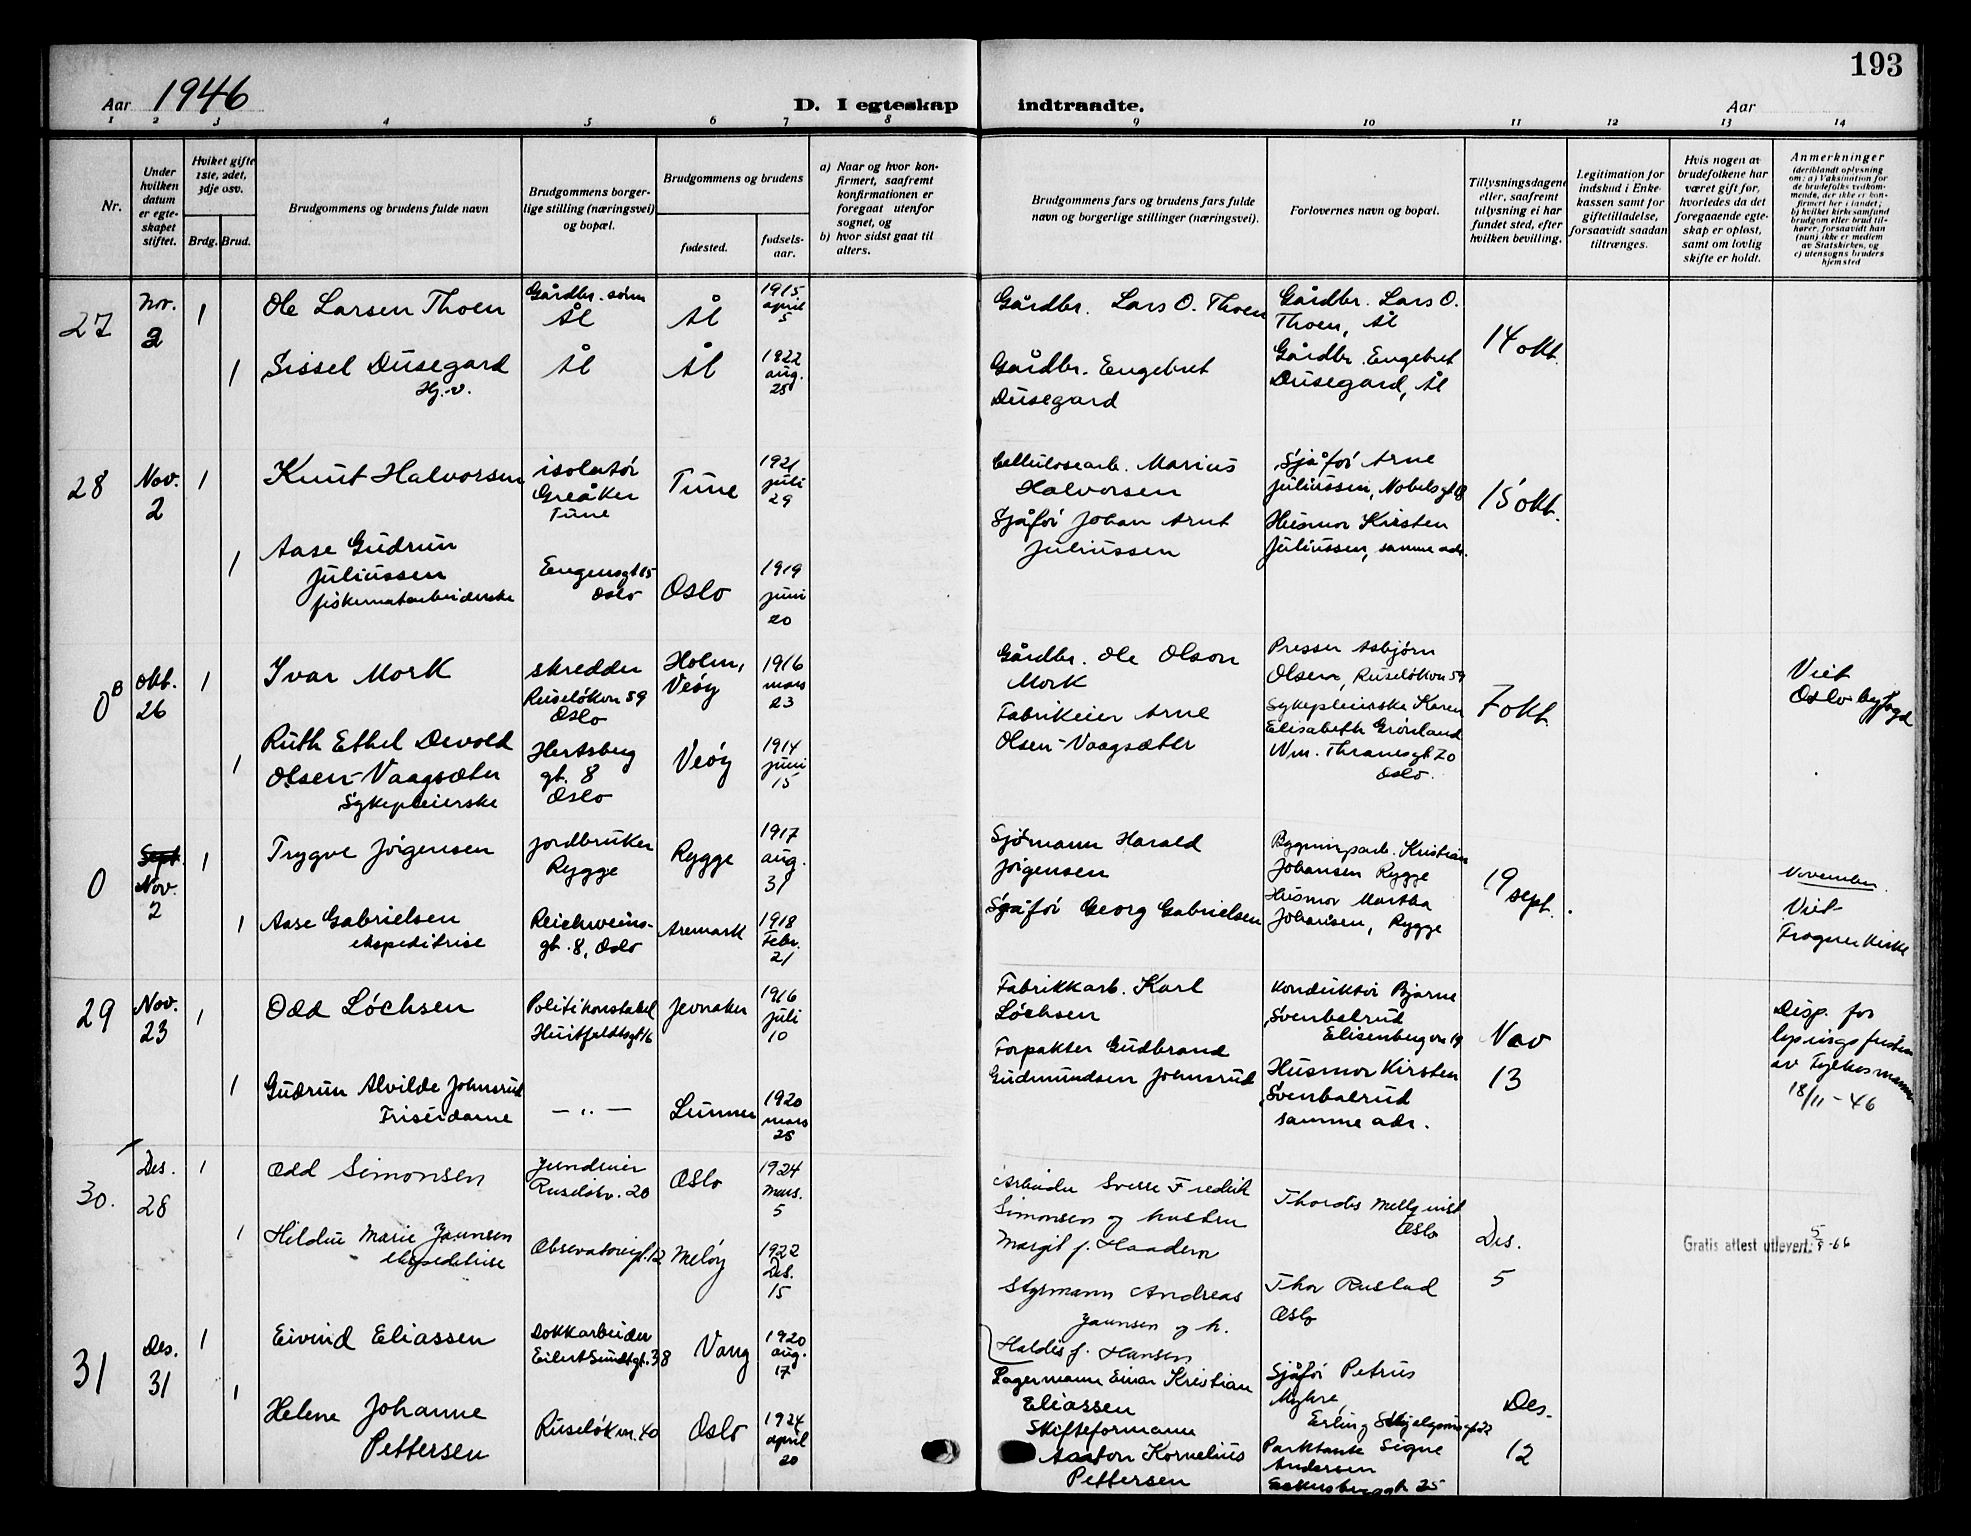 193
Aar 1946
D. I egteskap indtraadte.
Aar
1 2 3 4 5 6 7 8 9 10 11 12 13 14
Nr.
Under
hvilken
datum
er egte-
skapet
stiftet.
Hviket gifte
1ste, 2det,
3dje osv.
Brdg.
Brud.
Brudgommens og brudens fulde navn
Brudgommens borger-
lige stilling (næringsvei)
og bopæl.
Brudgommens og brudens
fødested.
fødsels-
aar.
a) Naar og hvor kon-
firmert, saafremt
konfirmationen er
foregaat utenfor
sognet, og
b) hvor sidst gaat til
alters.
Brudgommens fars og brudens fars fulde
navn og borgerlige stillinger (næringsvei).
Forlovernes navn og bopæl.
Tillysningsdagene
eller, saafremt
tillysning ei har
fundet sted, efter
hvilken bevilling.
Legitimation for
indskud i Enke-
kassen samt for
giftetilladelse,
forsaavidt saadan
tiltrænges.
Hvis nogen av
brudefolkene har
været gift før,
hvorledes da det
foregaaende egte-
skap er opløst,
samt om lovlig
skifte er holdt.
Anmerkninger
(deriblandt oplysning
om: a) Vaksination for
de brudefolks vedkom-
mende, der ikke er kon-
firmert her i landet;
b) hvilket kirkesamfund
brudgom eller brud til-
hører, forsaavidt han
(hun) ikke er medlem
av Statskirken, og
c) utensogns bruders
hjemsted
27
Nov.
2
1
Ole Larsen Thoen
Gårdbr. sønn
Ål
Ål
1915
april
5
Gårdbr. Lars O. Thoen
Gårdbr. Lars O.
Thoen, Ål
14 okt.
1
Sissel Dusegard
Hj.v.
Ål
Ål
1922
aug.
25
Gårdbr. Engebret
Dusegard
Gårdbr. Engebret
Dusegard, Ål
28
Nov.
2
1
Knut Halvorsen
isolatør
Greåker
Tune
Tune
1921
juli
29
Cellulosearb. Marius
Halvorsen
Sjåfør Arne
Juliussen, Nobelsgt 18
15 okt.
1
Aase Gudrun
Juliussen
fiskematarbeiderske
Eugensgt 15
Oslo
Oslo
1919
juni
20
Sjåfør Johan Arnt
Juliussen
Husmor Kirsten
Juliussen, samme adr.
0B
Okt.
26
1
Ivar Mork
skredder
Ruseløkvn 59
Oslo
Holm,
Veøy
1916
mars
23
Gårdbr. Ole Olson
Mork
Presser Asbjørn
Olsen, Ruseløkvn 59
7 okt.
Viet
Oslo byfogd
1
Ruth Ethel Devold
Olsen-Vaagsæter
Sykepleierske
Hertzberg
gt. 8
Oslo
Veøy
1914
juni
15
Fabrikeier Arne
Olsen-Vaagsæter
Sykepleierske Karen
Elisabeth Grønland
Wm. Thranesgt 70
Oslo.
0
Sept.
Nov.
2
1
Trygve Jørgensen
jordbruker
Rygge
Rygge
1917
aug.
31
Sjømann Harald
Jørgensen
Bygningsarb. Kristian
Johansen Rygge
19 sept.
November.
Viet
Frogner kirke
1
Aase Gabrielsen
ekspeditrise
Reichweins-
gt. 8, Oslo
Aremark
1918
Febr.
21
Sjåfør Georg Gabrielsen
Husmor Martha
Johansen, Rygge
29
Nov.
23
1
Odd Løchsen
Politikonstabel
Huitfeldtsgt 16
Jevnaker
1916
juli
10
Fabrikkarb. Karl
Løchsen
Konduktør Bjarne
Svenbalrud
Elisenbergvn 19
Nov
13
Disp. for
lysningsfristen
av Fylkesmannen
18/11-46
1
Gudrun Alvilde Johnsrud
Frisørdame
— „ —
Lunner
1920
mars
25
Forpakter Gudbrand
Gudmundsen Johnsrud
Husmor Kirsten
Svenbalrud
samme adr.
30.
Des.
28
1
Odd Simonsen
Ruseløkv. 20
Oslo
1924
Mars.
5
Arbeider Sverre Fredrik
Simonsen og hustru
Margit f. Haadem
Thordis Mellquist
Oslo
Des.
5
Gratis attest utlevert. 5/9-66
1
Marie Jaunsen
ekspeditrise
Observatoriegt. 12
Meløy
1922
Des.
15
Styrmann Andreas
Jaunsen og h.
Haldis f. Hansen
Thor Rustad
Oslo
31
Des.
31
1
Eivind Eliassen
Dokkarbeider
Eilert Sundtgt. 38
Vang
1920
aug.
17
Lagermann Einar Kristian
Eliassen
Sjåfør Petrus
Myhre,
Erling Skjalgsonsgt 22
Des.
12
1
Helene Johanne
Pettersen
Ruseløkvn. 40
Oslo
1924
april
20
Skifteformann
Aaston Kornelius
Pettersen
Parktante Signe
Andersen
Eckersberggt 25